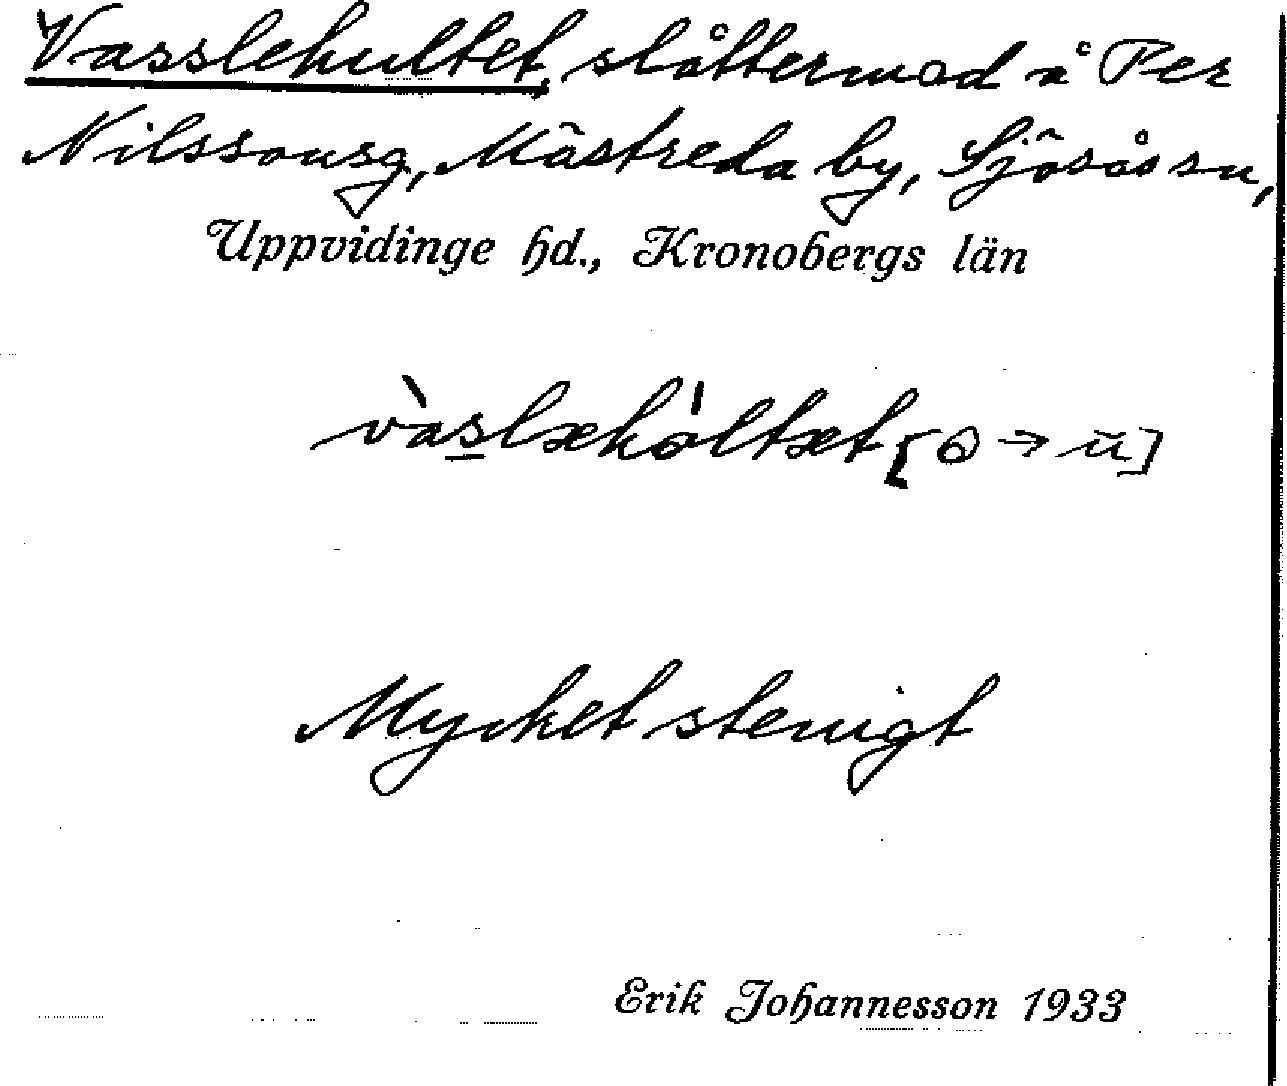 Vasslehultet, slåttermad å Per
Nilssonsg, Mästreda by, Sjösås sn,
Uppvidinge hd., Kronobergs län
Mycket stenigt
Erik Johannesson 1933